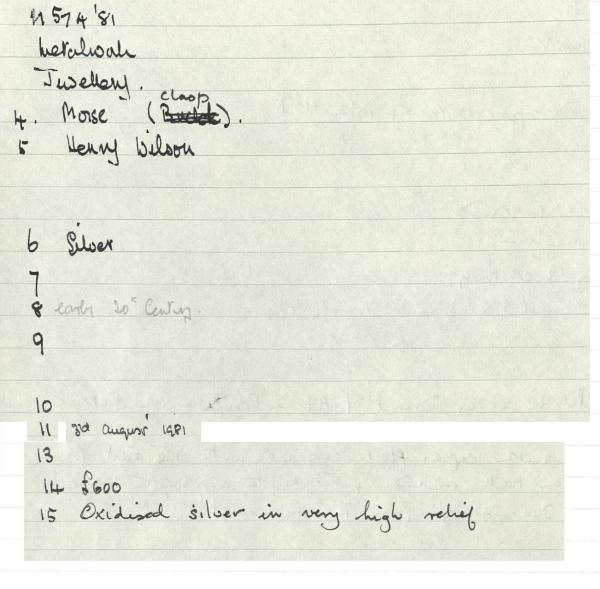 N 574 '81
Metalwork
Jewellery.
clasp
4. Morse (Buckle).
5 Henry Wilson
6 Silver
7
8 early 20th Century.
9
10
11 3rd August 1981
13
14 £600
15 Oxidised silver in very high relief